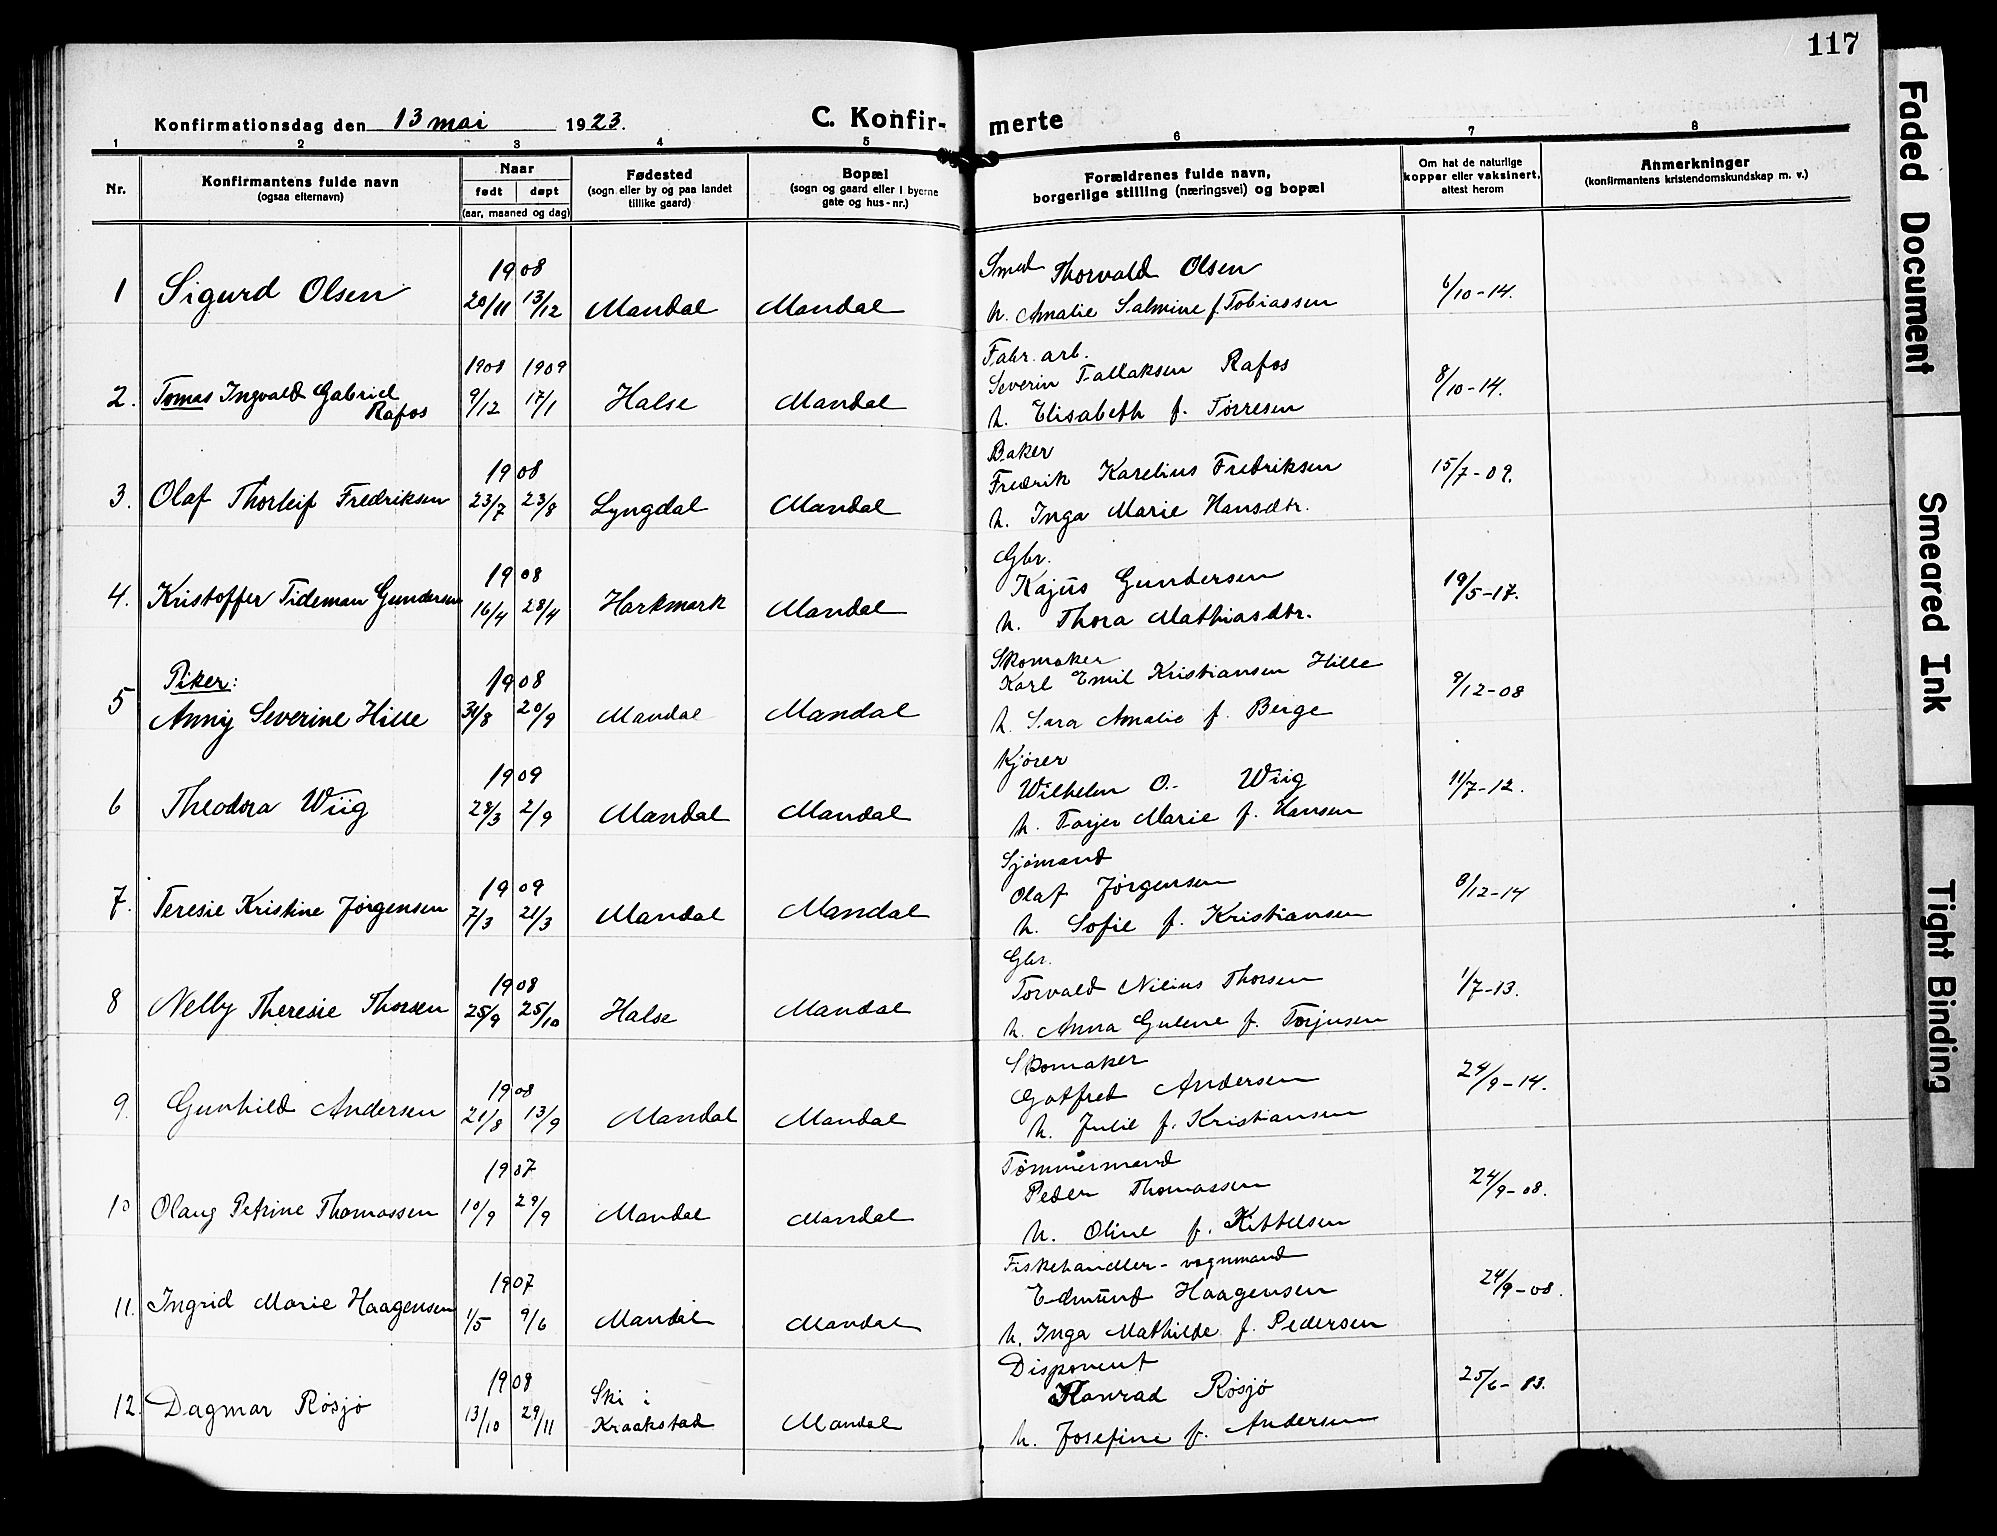 117
Konfirmationsdag den 13 mai 1923. C. Konfir- merte
1 2 3 4 5 6 7 8
Nr. Konfirmantens fulde navn (ogsaa efternavn) Naar født døpt (aar, maaned og dag) Fødested (sogn eller by og paa landet tillike gaard) Bopæl (sogn og gaard eller i byerne gate og hus-nr.) Forældrenes fulde navn, borgerlige stilling (næringsvei) og bopæl Om hat de naturlige kopper eller vaksinert, attest herom Anmerkninger (konfirmantens kristendomskundskap m. v.)
1908 Smed Thorvald Olsen
1 Sigurd Olsen 20/11 13/12 Mandal Mandal h. Amalie Salmine f. Tobiassen 6/10-14.
1908 1909 Fabr. arb.
Severin Tallaksen Rafos
2. Tomas Ingvald Gabriel Rafos 9/12 17/1 Halse Mandal h. Elisabeth f. Tørresen 8/10-14.
1908 Baker
Fredrik Karelius Fredriksen
3. Olaf Thorleif Fredriksen 23/7 23/8 Lyngdal Mandal h. Inga Marie Hansdtr. 15/7-09.
1908 Gbr.
Kajus Gundersen
4. Kristoffer Tideman Gundersen 16/4 28/4 Harkmark Mandal h. Thora Mathiasdtr. 19/5-17.
Piker: 1908 Skomaker
Karl Emil Kristiansen Hille
5 Anny Severine Hille 31/8 20/9 Mandal Mandal h. Sara Amalie f. Berge 9/12-08
1909 Kjører
Wilhelm O. Wiig
6 Theodora Wiig 28/3 2/9 Mandal Mandal h. Torjer Marie f. Hansen 11/7-12.
1909 Sjømand
Olaf Jørgensen
7. Teresie Kristine Jørgensen 7/3 21/3 Mandal Mandal h. Sofie f. Kristiansen 8/12-14
1908 Gbr.
Torvald Nilius Thorsen
8 Nelly Theresie Thorsen 25/9 25/10 Halse Mandal h. Anna Gulene f. Torjusen 1/7-13.
1908 Skomaker
Gotfred Andersen
9. Gunhild Andersen 21/8 13/9 Mandal Mandal h. Julie f. Kristiansen 24/9-14.
1907 Tømmermand
Peder Thomassen
10 Olaug Petrine Thomassen 10/9 29/9 Mandal Mandal h. Oline f. Kittelsen 24/9-08.
1907 Fiskehandler - vognmand
Edmund Haagensen
11. Ingrid Marie Haagensen 1/5 9/6 Mandal Mandal h. Inga Mathilde f. Pedersen 24/9-08.
1908 Disponent
Konrad Røsjø
12. Dagmar Røsjø 13/10 29/11 Ski i Kraakstad Mandal h. Josefine f. Andersen 25/6-13.
Faded Document
Smeared Ink
Tight Binding